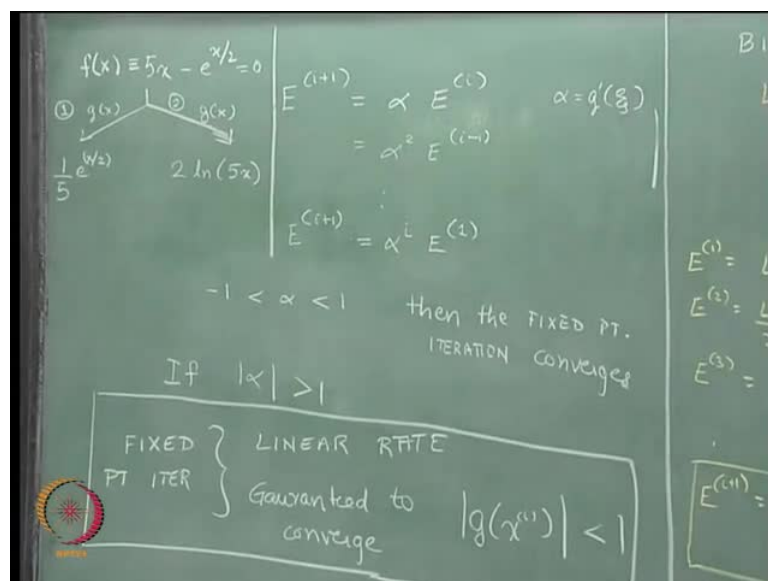 f(x) ≡ 5x - e^{x/2} = 0
① g(x) ② g(x)
1/5 e^{(x/2)} 2 ln(5x)
E^{(i+1)} = α E^{(i)} α = g'(ξ)
= α² E^{(i-1)}
:
E^{(i+1)} = α^i E^{(1)}
-1 < α < 1 then the FIXED PT.
ITERATION converges
If |α| > 1
FIXED PT ITER } LINEAR RATE
Gauranteed to converge |g(x^{(i)})| < 1
BI
E^{(1)} =
E^{(2)} =
E^{(3)} =
E^{(i+1)} =
NPTEL